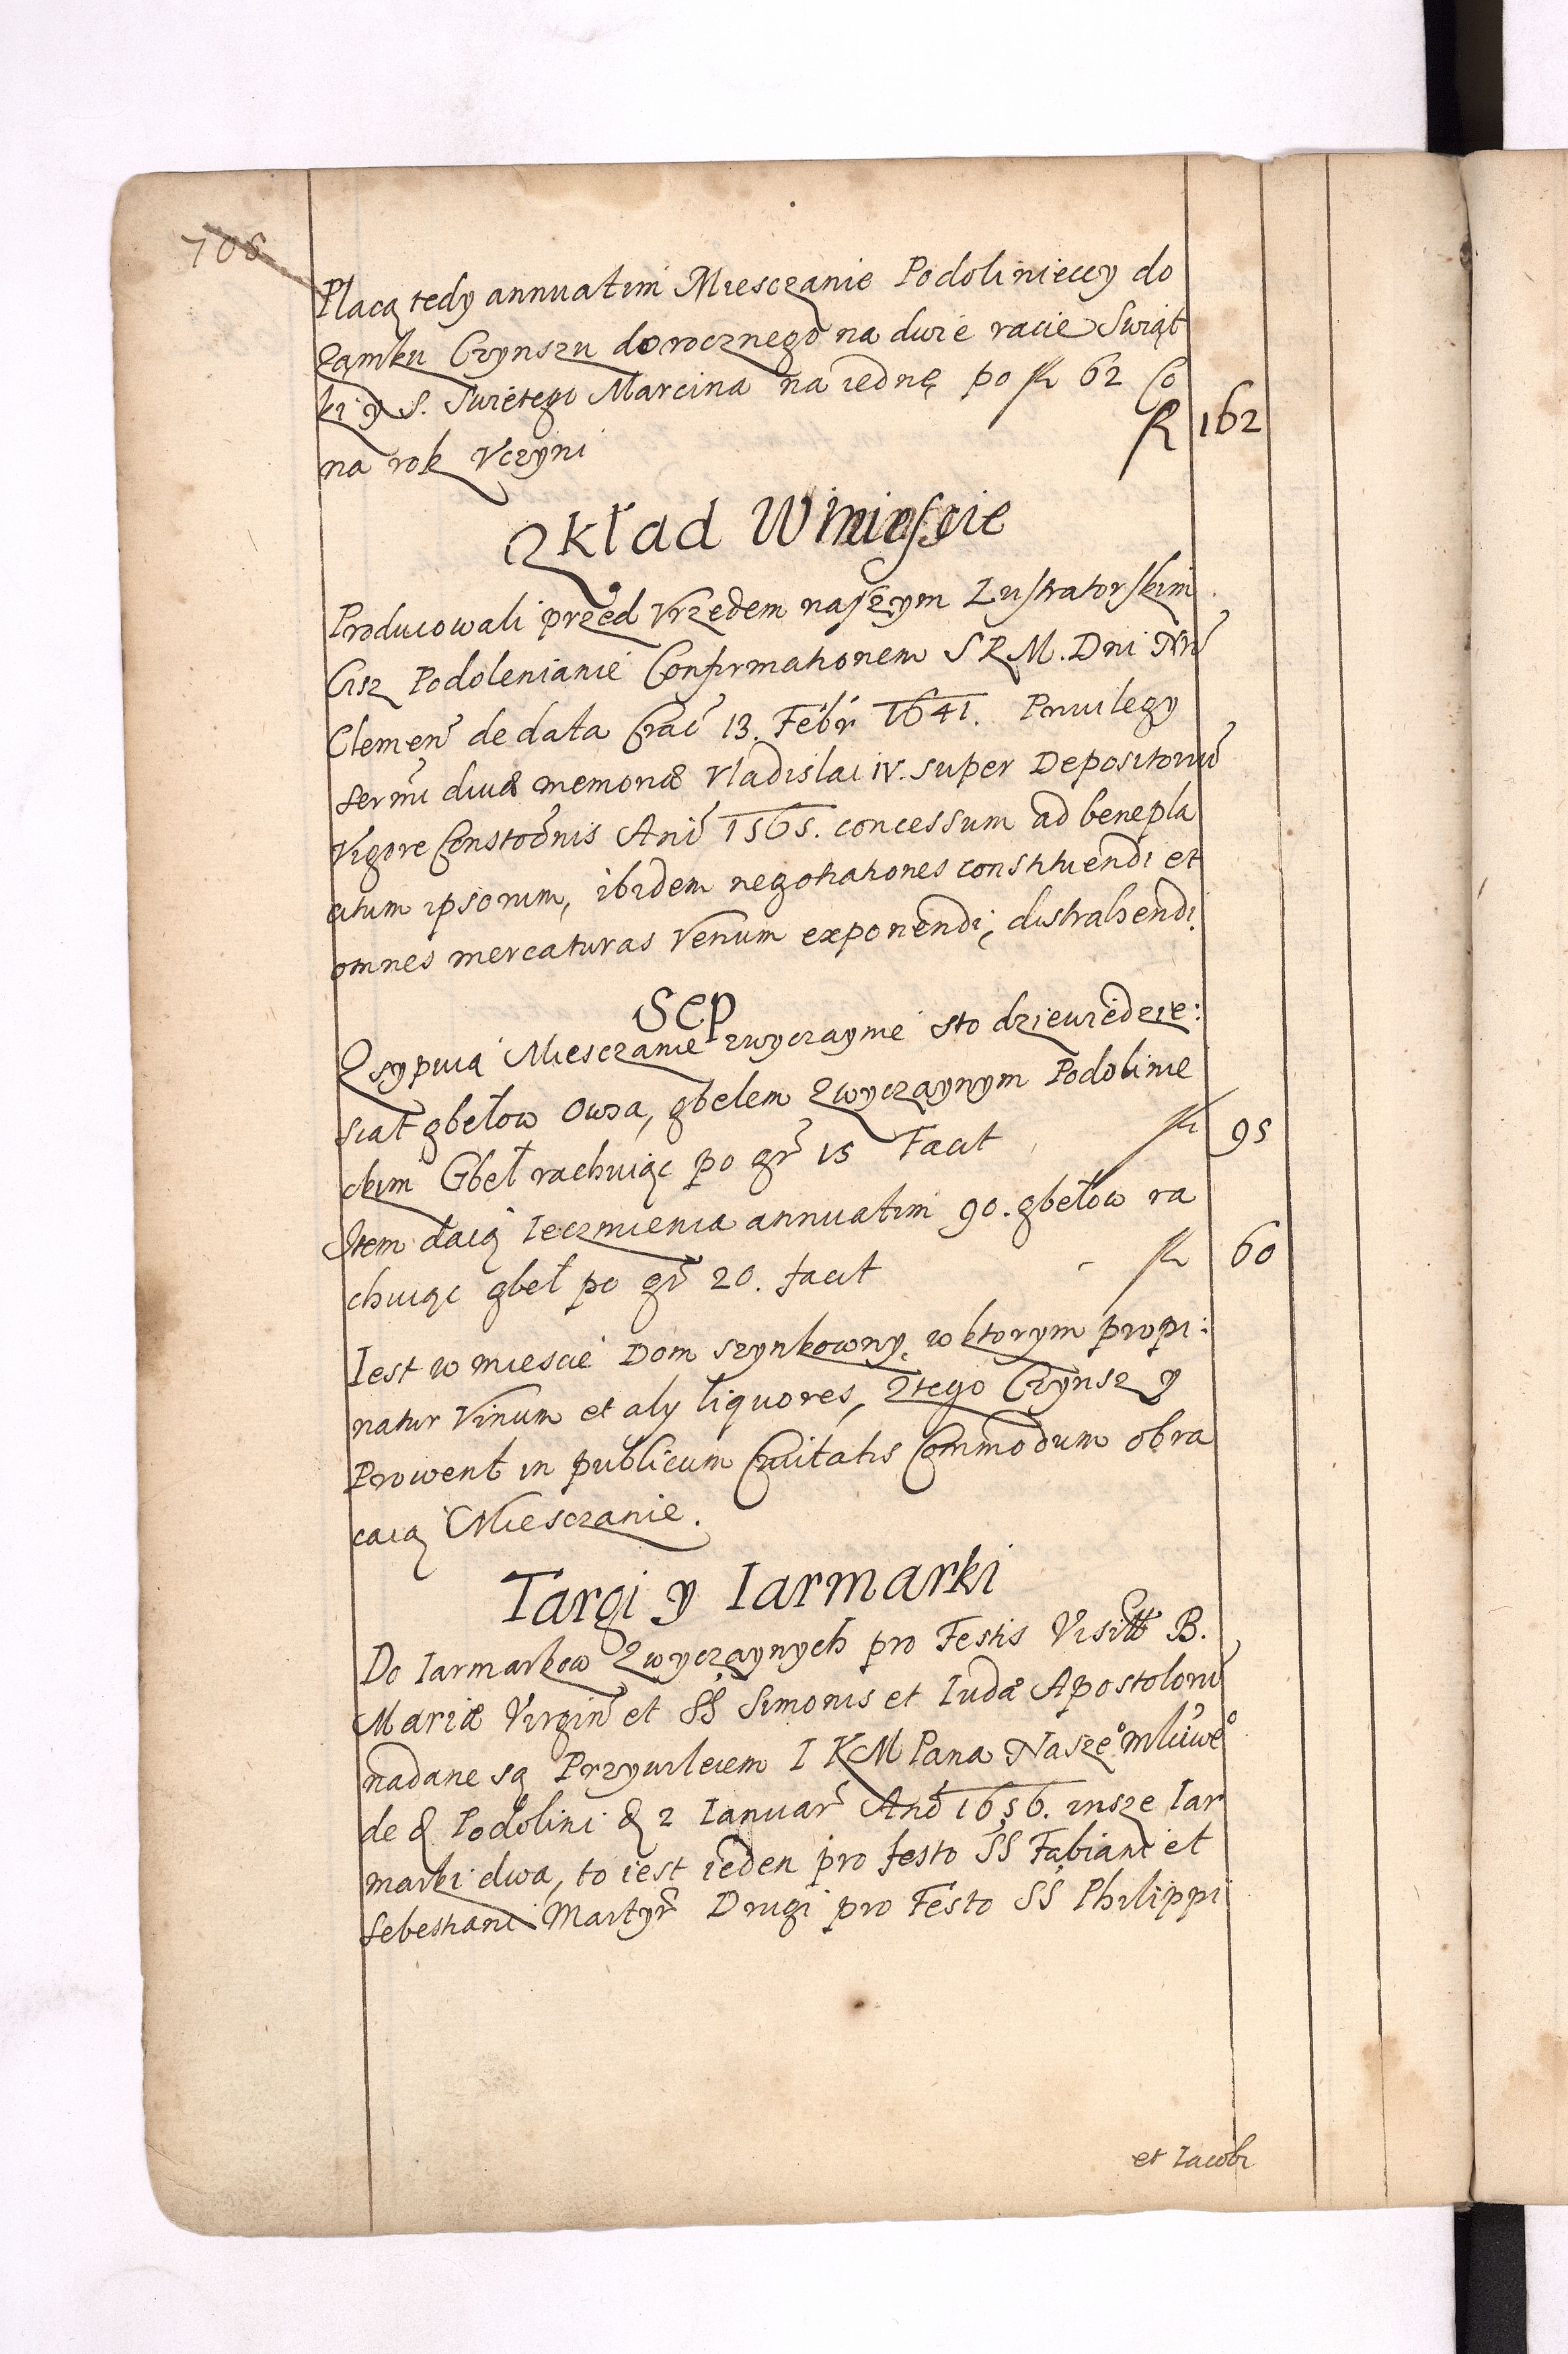 706
Placą tedy annuatim Miesczanie Podolinieccy do
Zamku Czynszu dorocznego na dwie racie Swiąt
ki y S. Swiętego Marcina na iednę po fl 62 Co
na rok Vczyni fl 162
Zkład W mieście
Producowali przed Vrzędem naszym Lustratorskim
Cisz Podolenianie Confirmationem S R M. Dni Nri
Clemen de data Crac 13. Febr 1641. Priuilegy
sermi diuæ memoriæ Vladislai IV. super Depositoriu
Vigore Constōnis Ani 1565. concessum ad benepla
citum ipsorum, ibidem negotiationes constituendi et
omnes mercaturas Venum exponendi, distrahendi.
Sep
Zsypuią Miesczanie zwyczayne sto dziewiędzie:
siat gbełow Owsa, gbelem Zwyczaynym Podolinie
ckim Gbeł rachuiąc po gr 15 Facit fl 95
Item daią Ieczmienia annuatim 90. gbełow ra
chuiąc gbeł po gr 20. facit - fl 60
Iest w miescie Dom szynkowny, w ktorym propi:
natur Vinum et aly liquores, Ztego Czynsz y
Prowent in publicum Ciuitatis Commodum obra
caią Miesczanie.
Targi y Iarmarki
Do Iarmarkow Zwyczaynych pro Festis Visitt B.
Mariæ Virgin et SS Simonis et Iudæ Apostoloru
nadane są Przywileiem I K M Pana Nasze° mliwe°
de & Podolini & 2 Ianuar Ano 1656. insze Iar
marki dwa, to iest ieden pro festo SS Fabiani et
Sebestiani Martyr Drugi pro Festo SS Philippi
et Iacobi